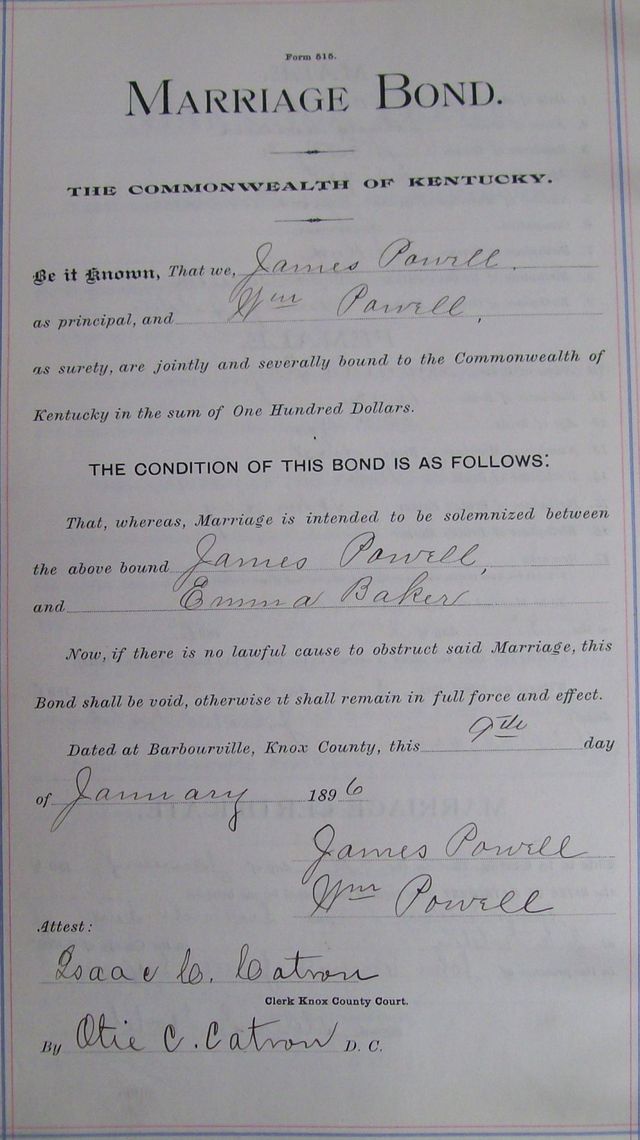 Form 515.
MARRIAGE BOND.
THE COMMONWEALTH OF KENTUCKY.
Be it Known, That we, James Powell.
as principal, and Wm Powell,
as surety, are jointly and severally bound to the Commonwealth of
Kentucky in the sum of One Hundred Dollars.
THE CONDITION OF THIS BOND IS AS FOLLOWS:
That, whereas, Marriage is intended to be solemnized between
the above bound James Powell,
and Emma Baker
Now, if there is no lawful cause to obstruct said Marriage, this
Bond shall be void, otherwise it shall remain in full force and effect.
Dated at Barbourville, Knox County, this 9th day
of January 1896
James Powell
Wm Powell
Attest:
Isaac C. Catron
Clerk Knox County Court.
By Otie C. Catron D. C.